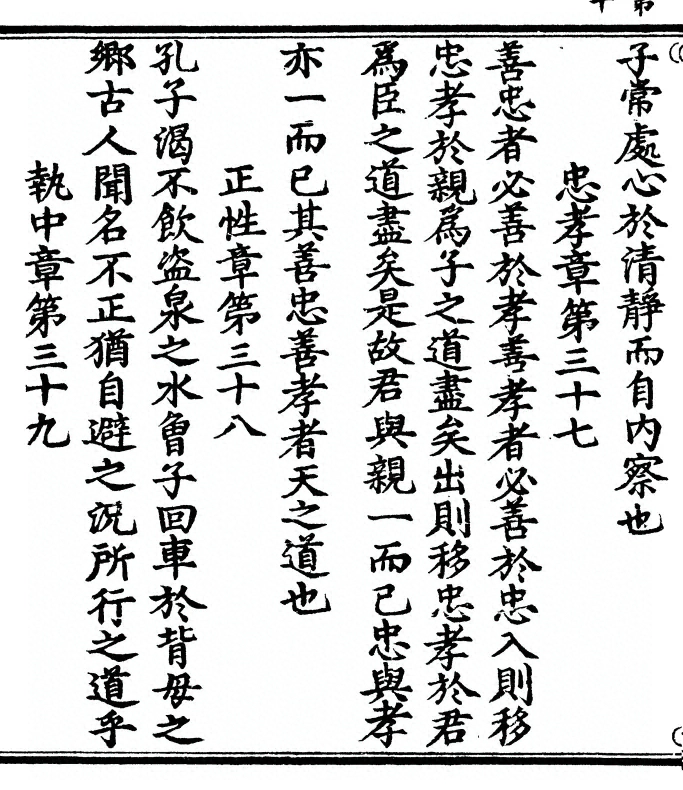 子常處心於清靜而自內察也
忠孝章第三十七
善忠者必善於孝善孝者必善於忠入則移
忠孝於親爲子之道盡矣出則移忠孝於君
爲臣之道盡矣是故君與親一而已忠與孝
亦一而已其善忠善孝者天之道也
正性章第三十八
孔子渴不飲盜泉之水曾子回車於背母之
鄉古人聞名不正猶自避之況所行之道乎
執中章第三十九